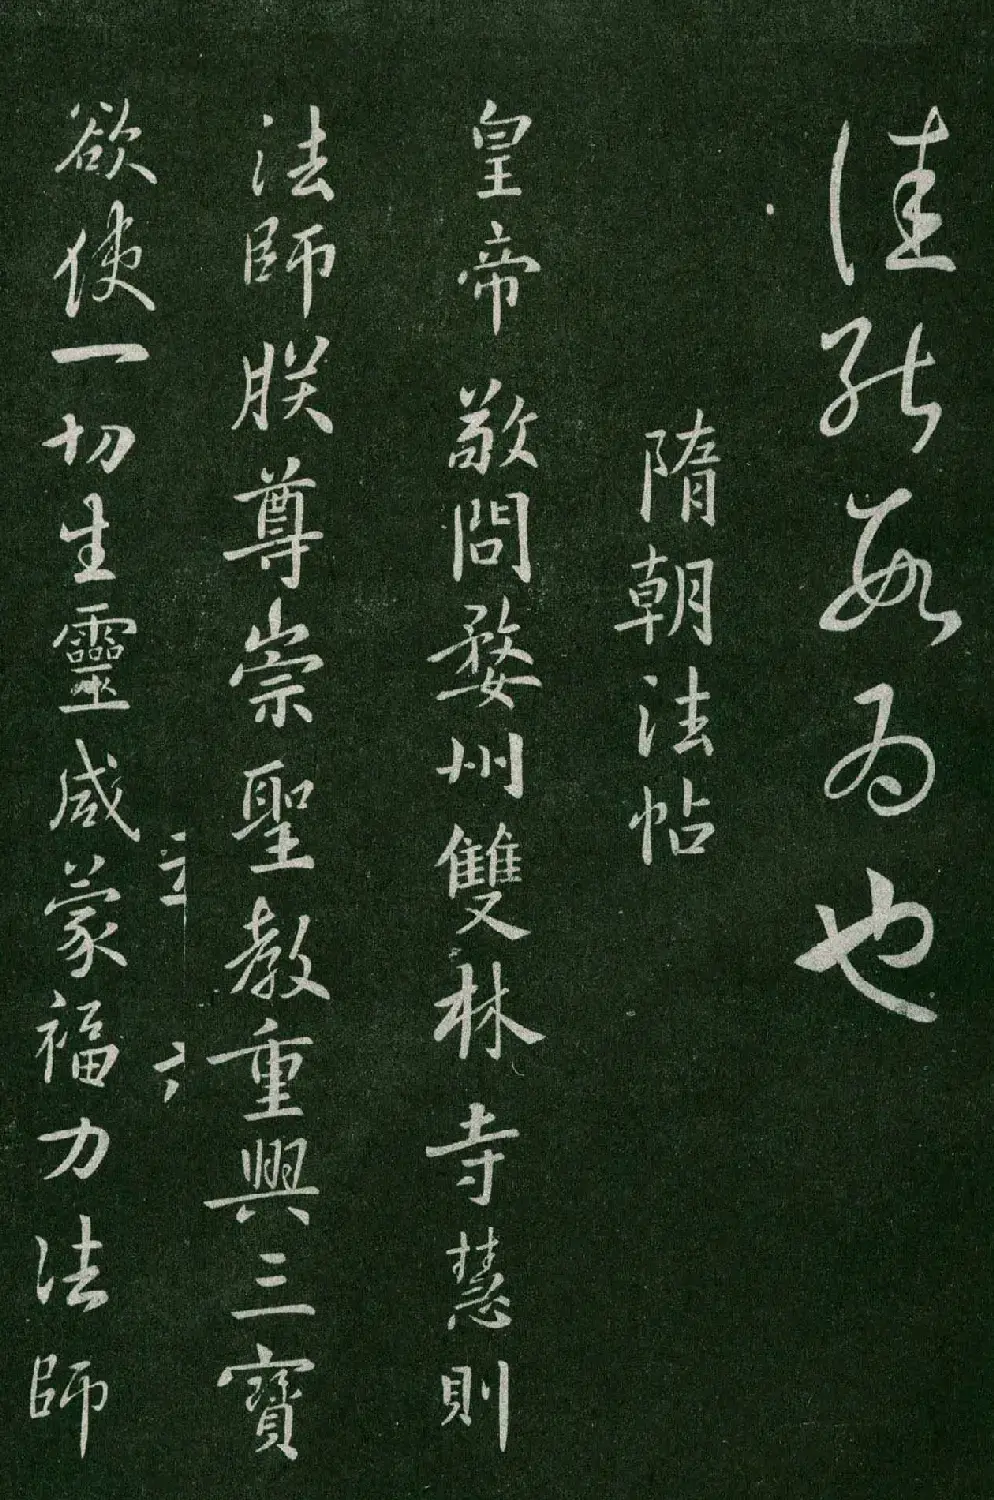 佳能為也
隋朝法帖
皇帝敬問婺州雙林寺慧則
法師朕尊崇聖教重興三寶
欲使一切生靈咸蒙福力法師